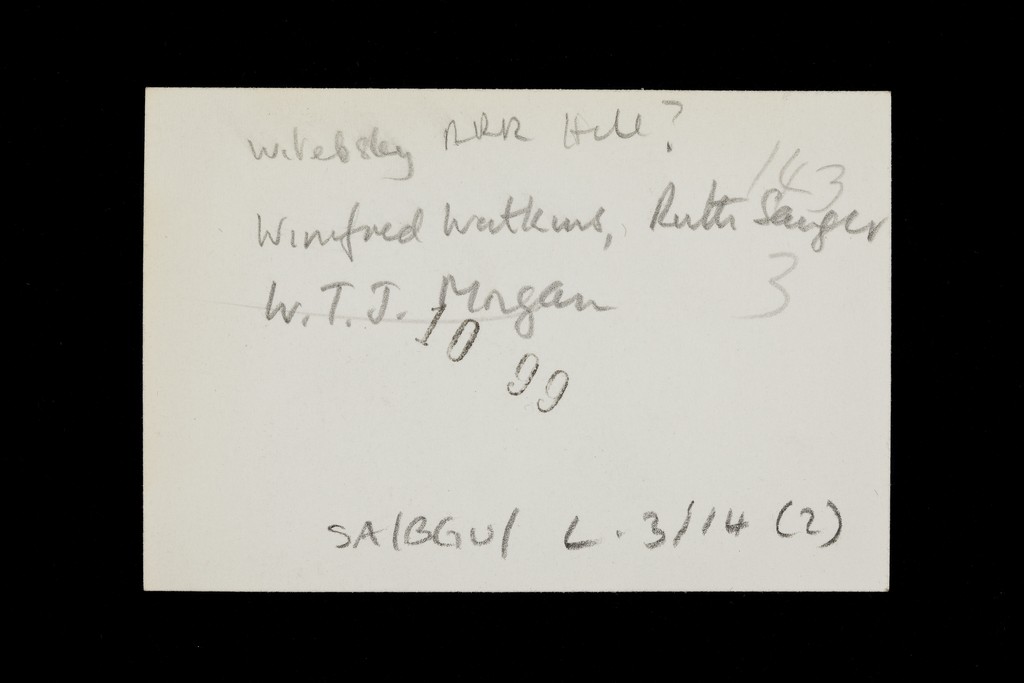 Witebsky RRR Hill?
143
Winifred Watkins, Ruth Sanger
W.T.J. Morgan
3
10 99
SA/BGU/ L.3/14 (2)